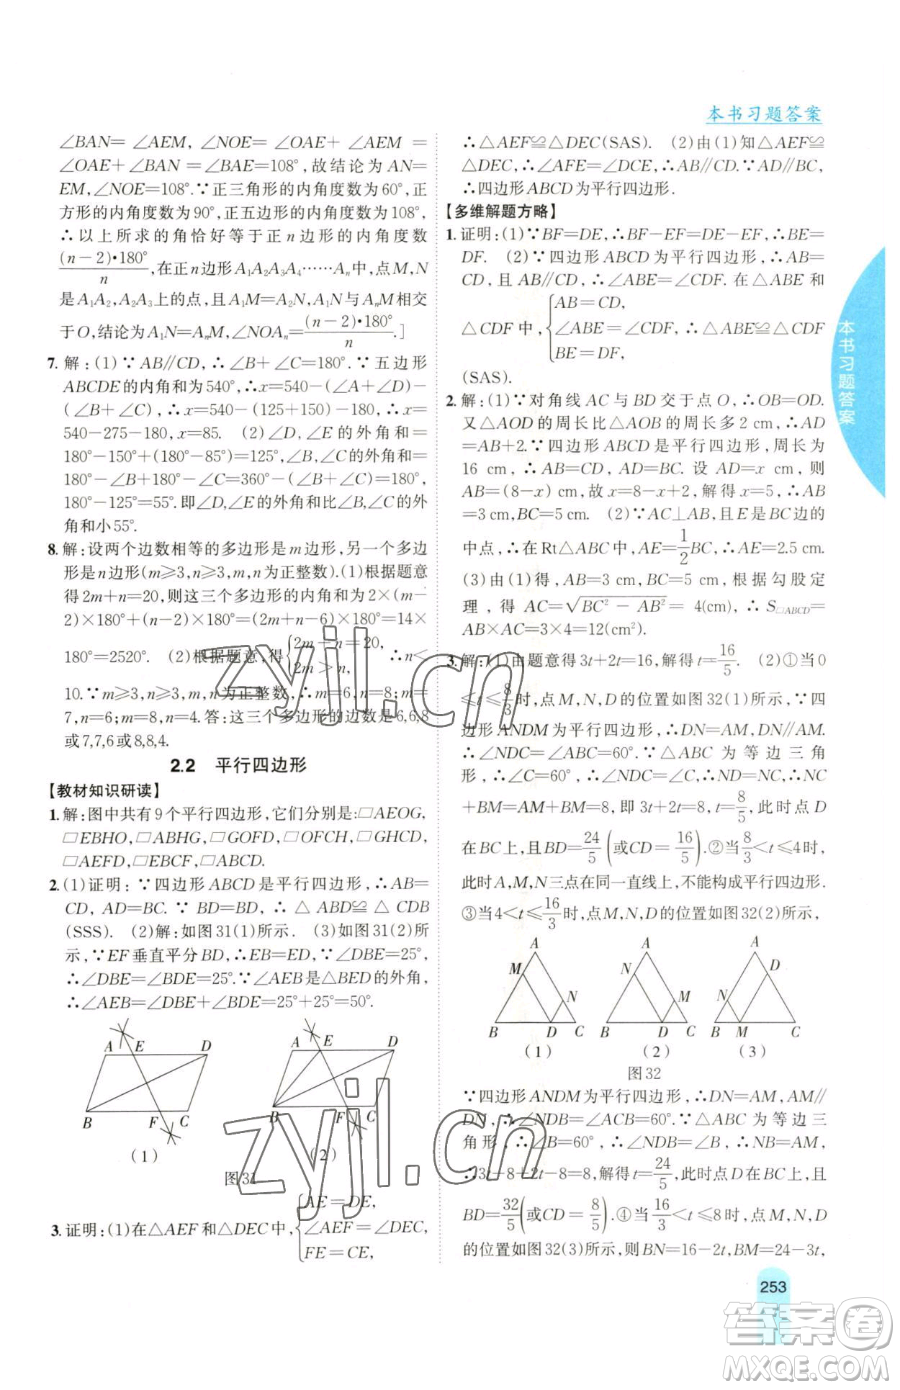 本书习题答案
∠BAN=∠AEM,∠NOE=∠OAE+∠AEM=
∠OAE+∠BAN=∠BAE=108°.故结论为 AN=
EM,∠NOE=108°.∵正三角形的内角度数为60°,正
方形的内角度数为90°,正五边形的内角度数为108°,
∴以上所求的角恰好等于正n边形的内角度数
(n-2)•180°/n,在正n边形A₁A₂A₃A₄……Aₙ中,点M,N
是A₁A₂,A₂A₃上的点,且A₁M=A₂N,A₁N与AₙM相交
于O,结论为A₁N=AₙM,∠NOAₙ=(n-2)•180°/n.]
7.解:(1)∵AB//CD,∴∠B+∠C=180°.∵五边形
ABCDE的内角和为540°,∴x=540-(∠A+∠E)-
(∠B+∠C),∴x=540-(125+150)-180,∴x=
540-275-180,∴x=85. (2)∠D,∠E的外角和=
180°-∠D+180°-∠E=360°-(∠D+∠E),∠B=
180°-125°=55°.即∠D,∠E的外角和比∠B的外
角和小55°.
8.解:设两个边数相等的多边形是m边形,另一个多边
形为n边形(m⩾3,n⩾3,m,n为正整数).(1)根据题意
得2m+n=20,则这三个多边形的内角和为2(m-
2)×180°+(n-2)×180°=(2m+n-6)×180°=14×
180°=2520°. (2)根据题意,得{2m+n=20, 2m>n, ∴n<
10.∵m⩾3,n⩾3,m,n为正整数,∴n=4,m=8;n=6,m=
7,n=6;m=8,n=4.答:这三个多边形的边数是6,6,8
或7,7,6或8,8,4.
2.2 平行四边形
【教材知识研读】
1.解:图中共有9个平行四边形,它们分别是:□AEOG,
□EBHO,□ABHG,□GOFD,□OFCH,□GHCD,
□AEFD,□EBCF,□ABCD.
2.(1)证明:∵四边形ABCD是平行四边形,∴AB=
CD,AD=BC.∵BD=BD,∴△ABD≌△CDB
(SSS). (2)解:如图31(1)所示. (3)如图31(2)所
示,∵EF垂直平分BD,∴EB=ED,∵∠DBE=25°,
∴∠DBE=∠BDE=25°.∵∠AEB是△BED的外角,
∴∠AEB=∠DBE+∠BDE=25°+25°=50°.
A E D
B F C
(1)
A E D
B F C
(2)
图31
3.证明:(1)在△AEF和△DEC中,{AE=DE, ∠AEF=∠DEC, FE=CE,
∴△AEF≌△DEC(SAS). (2)由(1)知△AEF≌
△DEC,∴∠AFE=∠DCE,∴AB//CD.∵AD//BC,
∴四边形ABCD为平行四边形.
【多维解题方略】
1.证明:(1)∵BF=DE,∴BF-EF=DE-EF,∴BE=
DF. (2)∵四边形ABCD为平行四边形,∴AB=
CD,且AB//CD,∴∠ABE=∠CDF.在△ABE和
△CDF中,{AB=CD, ∠ABE=∠CDF, BE=DF, ∴△ABE≌△CDF
(SAS).
2.解:(1)∵对角线AC与BD交于点O,∴OB=OD.
又△AOD的周长比△AOB的周长多2 cm,∴AD=
AB+2.∵四边形ABCD是平行四边形,周长为
16 cm,∴AD+AB=8 cm.设AD=x cm,则
AB=(8-x)cm,故x=8-x+2,解得x=5,∴AB
=3 cm,BC=5 cm. (2)∵AC⊥AB,且E是BC边的
中点,∴在Rt△ABC中,AE=1/2BC,∴AE=2.5 cm.
(3)由(1)得,AB=3 cm,BC=5 cm,∴根据勾股定
理,AC=√(BC²-AB²)=4(cm),∴S□ABCD=
AB×AC=3×4=12(cm²).
3.解:(1)由题意得3t+2t=16,解得t=16/5. (2)①当0
⩽t⩽8/3时,点M,N,D的位置如图32(1)所示,∵四
边形ANDM为平行四边形,∴DN=AM,AM//DN,
∴∠NDC=∠ABC=60°.∵△NDC为等边三角
形,∴DN=NC=DC=2t,∴AM=NC=2t.又AM
+BM=AM+NC=8,即3t+2t=8,t=8/5,此时点D
在BC上,且BD=24/5(或CD=16/5).②当8/3<t⩽4时,
此时A,M,N三点在同一直线上,不能构成平行四边形.
③当4<t⩽16/3时,点M,N,D的位置如图32(2)所示,
A M N B D C
(1)
A M N B D C
(2)
A D N B M C
(3)
图32
∵四边形ANDM为平行四边形,∴DN=AM,AM//
DN,∴∠NDB=∠ACB=60°.∵△NDB为等边三
∴3t-8+2t-8=8,解得t=24/5,此时点D在BC上,且
BD=32/5(或CD=8/5).④当16/3<t⩽8时,点M,N,D
的位置如图32(3)所示,则BN=16-2t,BM=24-3t,
本书习题答案
253
zyjl.cn
zyjl.cn
答案圈
MXQE.COM